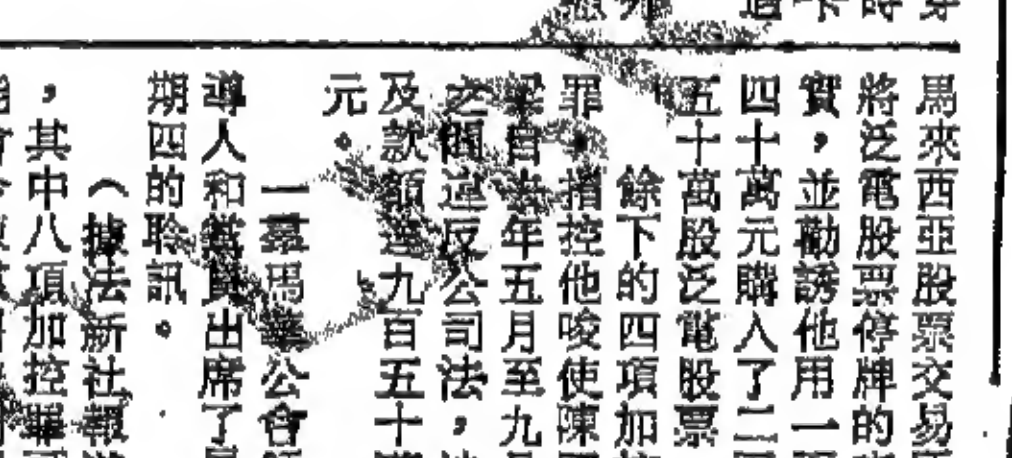 馬來西亞股票交易
將泛電股票停牌的
實，並勸誘他用一
四十萬元購入了二
五十萬股泛電股票
餘下的四項加
罪。指控他唆使陳
自去年五月至九
之間違反公司法，
及款項達九百五十
元。
一羣馬華公會
導人和黨員出席了
期四的聆訊。
（據法新社報
，其中八項加控罪